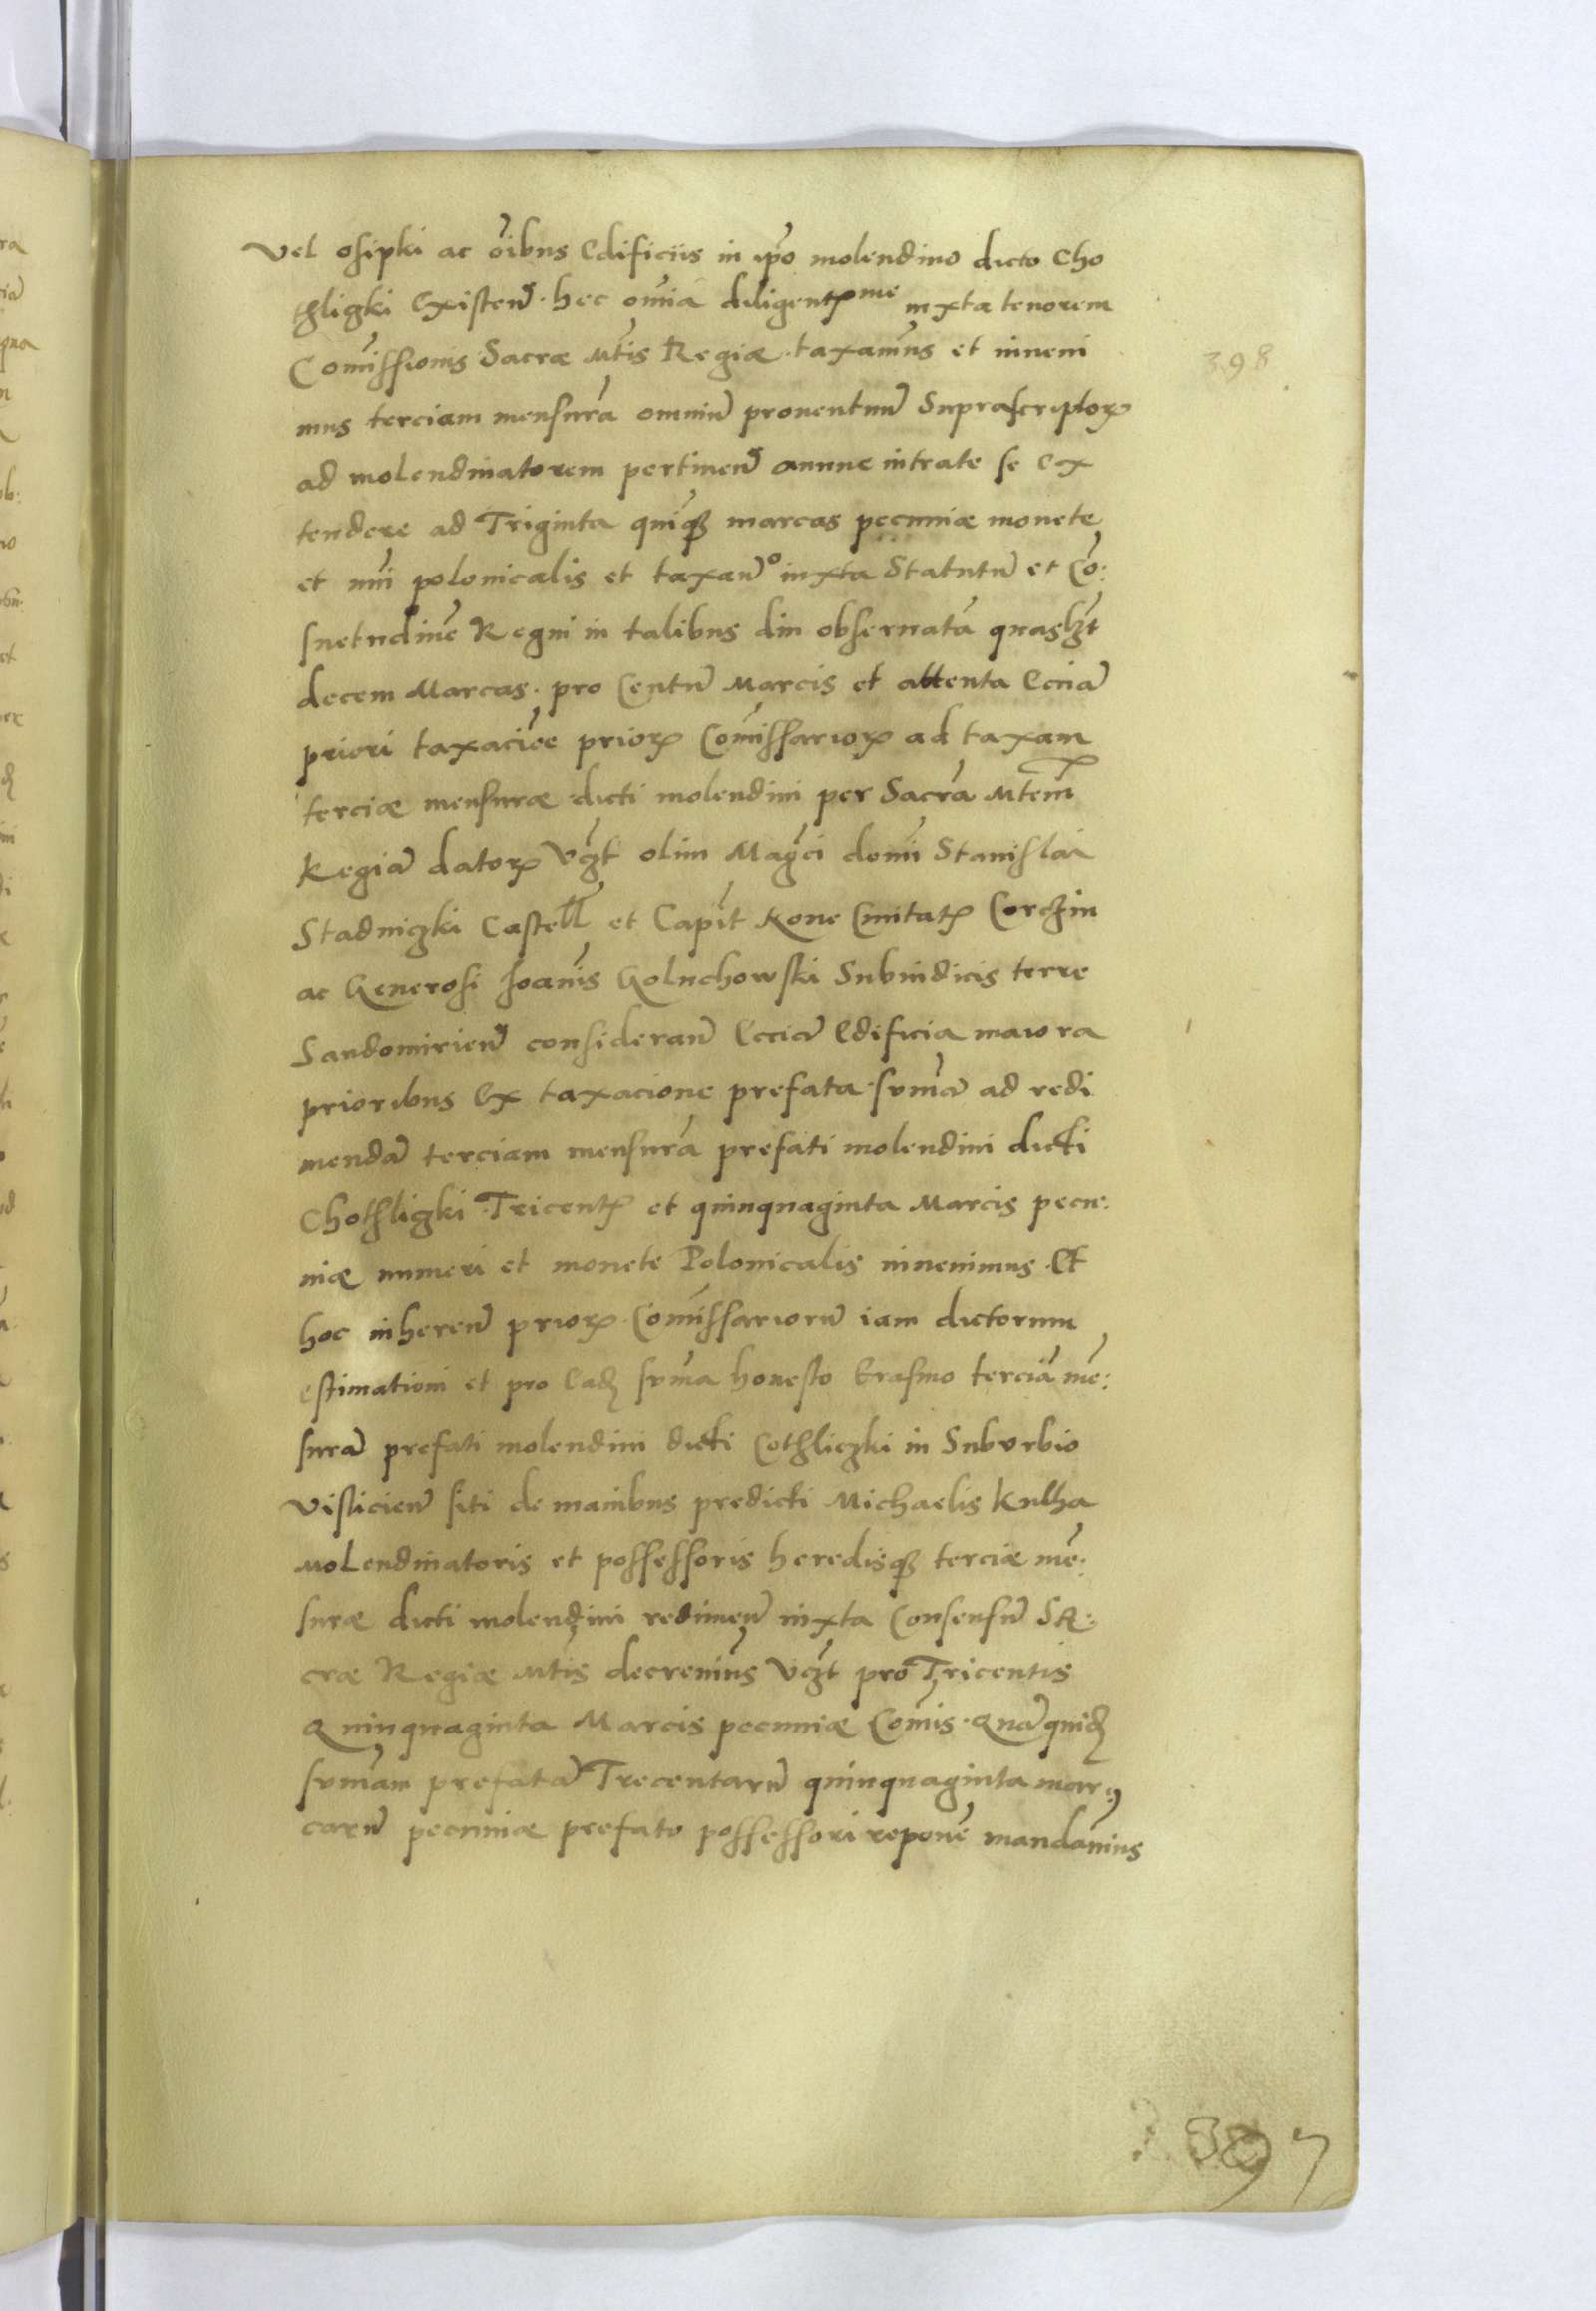 Vel osipki ac oı̄bus Edificiis in ip̄o molendino dicto Cho
thligki Existen̄. hec om̄ia diligentꝫme iuxta tenorem
Com̄issionis Sacræ Mt̄is Regiæ taxauim̄us et inueni
mus terciam mensurā omniū prouentuū Suprascriptoꝝ
ad molendinatorem pertinen̄ annue intrate se Ex
tendere ad Triginta quı̄qꝫ marcas pecuniæ monete
et nūi polonicalis et taxan̄º iuxta Statutū et Cō:
suetudinē Regni in talibus diu obseruatā quaslꝫt
decem Marcas. pro Centū Marcis et attenta Eciā
priori taxaciōe prioꝝ Com̄issarioꝝ ad taxam
terciæ mensuræ dicti molendini per Sacrā Mt̄em
Regiā datoꝝ Vcꝫt olim Maḡci domı̄ Stanislai
Stadniczki Castell̄ et Capit̄ Rone Cuitatꝫ Corczin
ac Generosi Joan̄is Goluchowski Subiudicis terre
Sandomirien̄ consideran̄ Eciā Edificia maiora
prioribus Ex taxacione prefata sum̄ā ad redi
mendā terciam mensurā prefati molendini dicti
Chothligki Tricentꝫ et quinquaginta Marcis pecu:
niæ numeri et monete Polonicalis inuenimus. Et
hoc inheren̄ prioꝝ Com̄issariorū iam dictorum
estimationi et pro Eadꝫ sum̄a honesto Erasmo terciā mē:
surā prefati molendini dicti Cothliczki in Suburbio
Visticien̄ siti de manibus predicti Michaelis Kulha
Molendinatoris et possessoris heredisqꝫ terciæ mē:
suræ dicti molendini redimen̄ iuxta Consensū SA:
cræ Regiæ Mt̄is decreuim̄us Vcꝫt pro Tricentis
Quinquaginta Marcis pecuniæ Com̄is. Quāquidꝫ
sum̄am prefatā Trecentarū quinquaginta mar:
carū pecuniæ prefato possessori reponē mandauim̄us
398
397